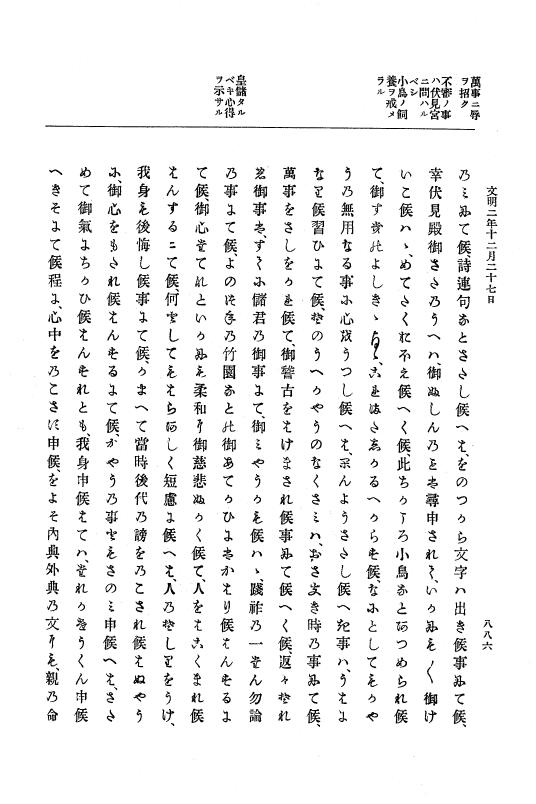 萬事ニ辱
ヲ招ク
不審ノ事
ハ伏見宮
ニ問ハル
ベシ
小鳥ノ飼
養ヲ戒メ
ラル
皇儲タル
ベキ心得
ヲ示サル
文明二年十二月二十七日
八八六
乃ミにて候、詩連句なとさたし候へは、をのつから文字ハ出き候事にて候、
幸伏見殿御さ候うへハ、御ふしんのをは尋申され候、いかにも〳〵御け
いこ候ハヽ、めてたく
候へく候、此ちかころ小鳥なとあつめられ候
て、御すき
のよしきゝ
うの無用なる事に心をうつし候へは、かんようさたし候へき事ハ、うはよ
なり候習ひにて候、
のうへかやうのなくさミハ、おさなき時の事にて候、
萬事をさしをかれ候て、御稽古をはけまされ候事にて候へく候、返々それ
の御事は、すてに儲君の御事にて、御ミやうかも候ハヽ、踐祚の一たん勿論
の事にて候よのつねの竹園なとの御あてかひにはかはり候はんするよ
て候、御心たてれといかにも柔和に御慈悲ふかく候て、人をはこくまれ候
はんするニて候、何としてもはらあしく短慮に候へは、人のそしりをうけ、
我身も後悔し候事にて候、かまへて當時後代の謗をのこされ候はぬやう
に、御心をもたれ候はんするにて候、かやうの事をさのミ申候へは、さた
めて御氣にちかひ候はんすれとも、我身申候はてハ、たれか
うくん申候
へきそにて候程に、心中をのこさす申候、をよそ内典外典の文にも、親の命